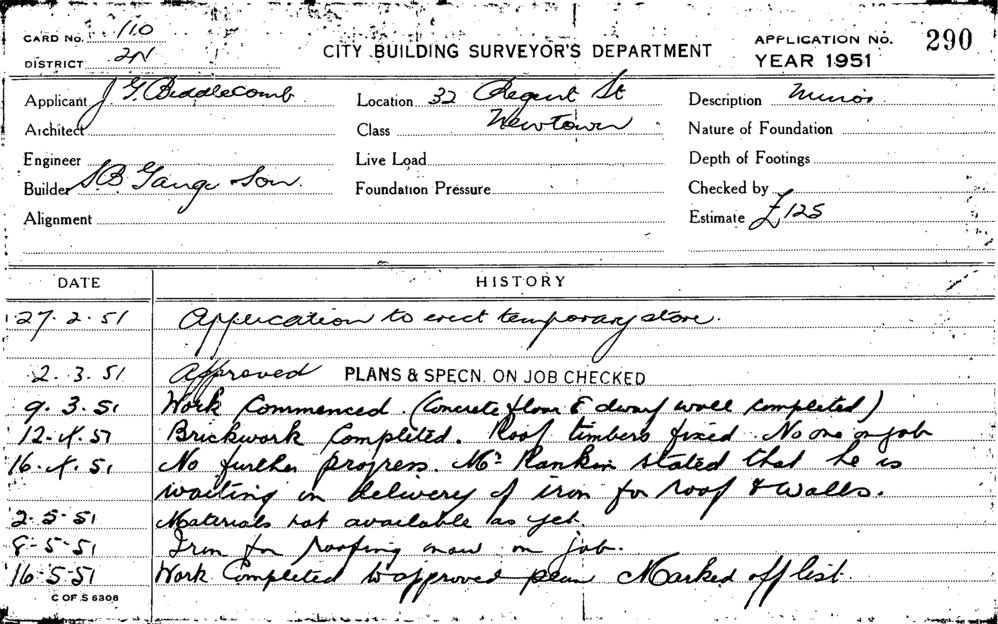 CARD No. 110
DISTRICT 2N
CITY BUILDING SURVEYOR'S DEPARTMENT
APPLICATION No. 290
YEAR 1951
Applicant J G. Biddlecomb
Architect
Engineer
Builder S B Gange & Son.
Alignment
Location 32 Regent St
Newtown
Class
Live Load
Foundation Pressure
Description Minor
Nature of Foundation
Depth of Footings
Checked by
Estimate £125
DATE HISTORY
27. 2. 51 Application to erect temporary store.
2. 3. 51 Approved PLANS & SPECN. ON JOB CHECKED
9. 3. 51 Work Commenced. (Concrete floor & dwarf wall completed)
12. 4. 51 Brickwork Completed. Roof timbers fixed. No one on job
16. 4. 51 No further progress. Mr Rankin stated that he is
waiting on delivery of iron for roof & walls.
2-5-51 Materials not available as yet.
8-5-51 Iron for roofing now on job.
16-5-51 Work Completed to approved plan Marked off list.
C OF S 6308